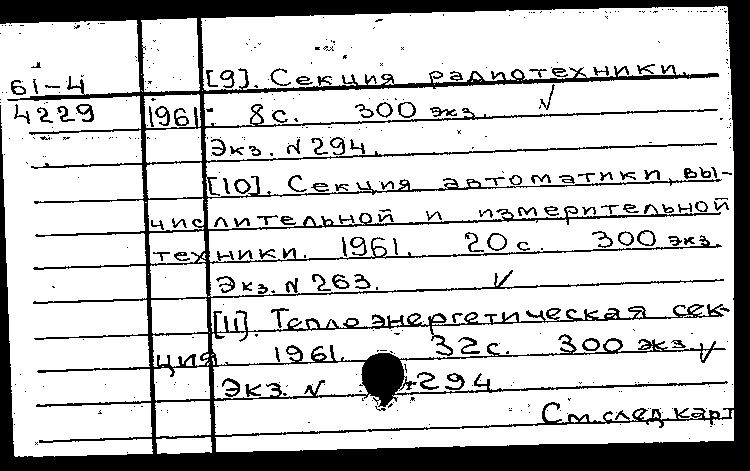 61-4 [9]. Секция радиотехники.
4229 1961. 8с. 300 экз. √
Экз. N 294.
[10]. Секция автоматики, вы-
числительной и измерительной
техники. 1961. 20с. 300 экз.
Экз. N 263. √
[11]. Теплоэнергетическая сек-
ция. 1961. 32с. 300 экз. √
Экз. N 294
См. след карт